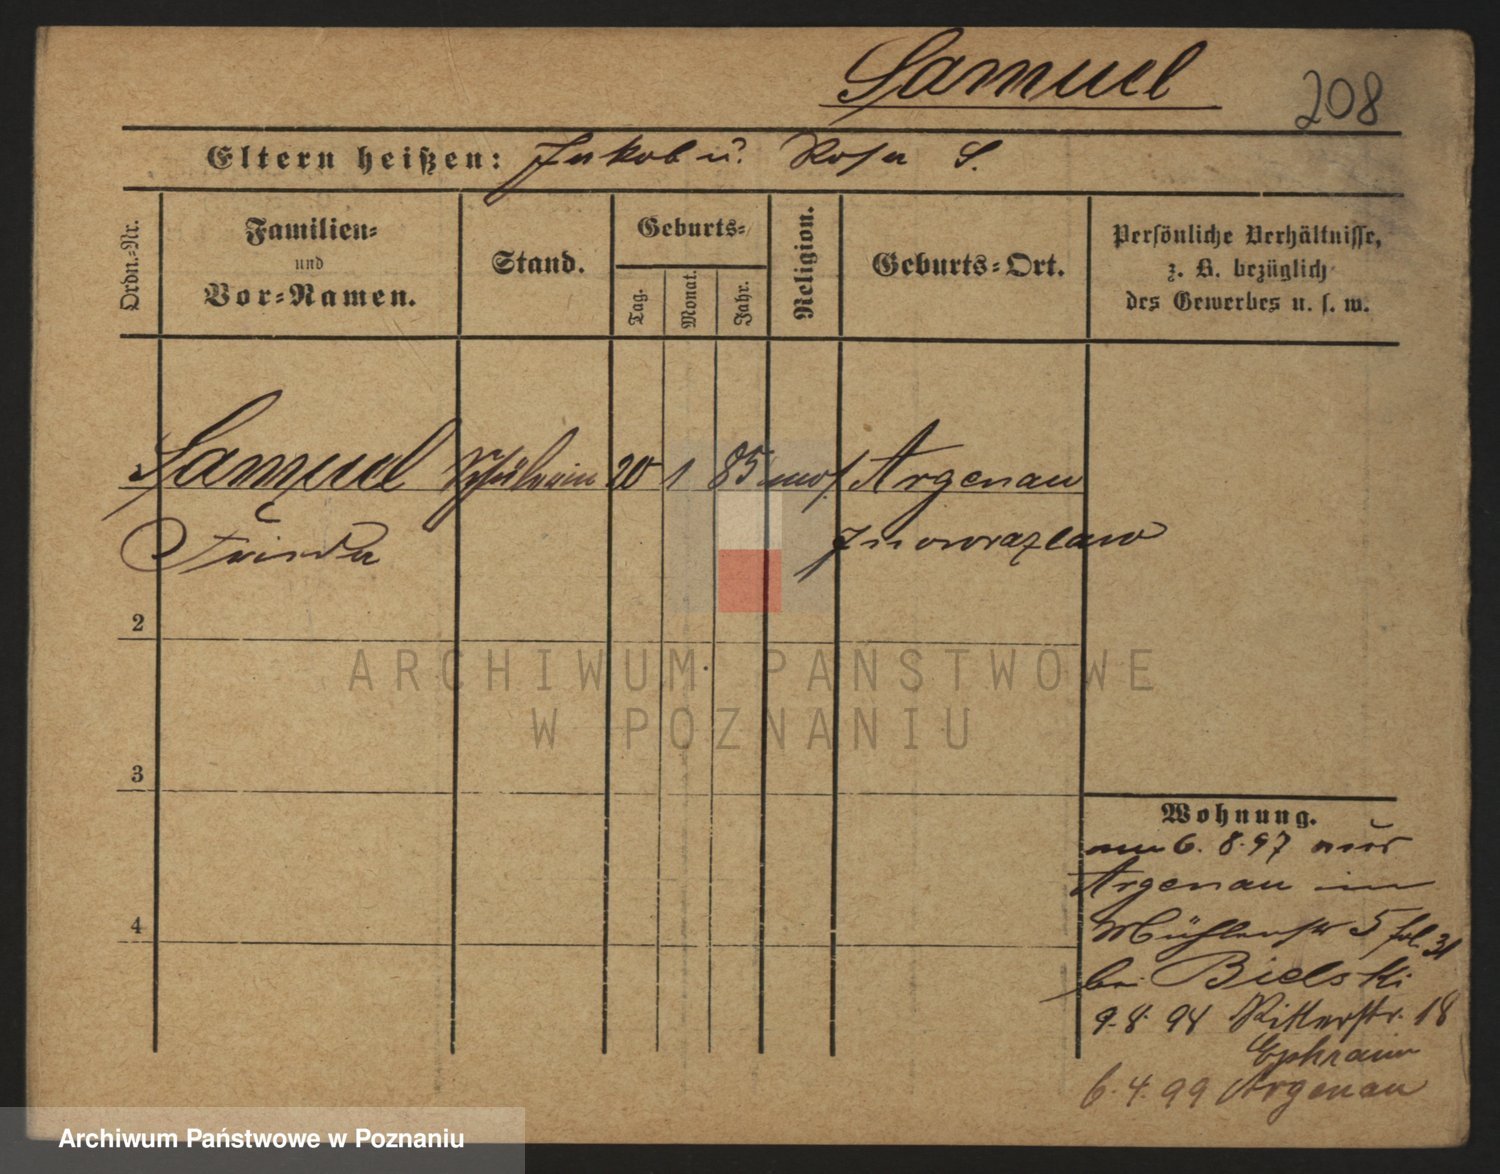 Samuel
208
Eltern heißen: Jakob u. Rosa S.
Ordn.=Nr.
Familien=
und
Vor=Namen.
Stand.
Geburts=
Tag.
Monat.
Jahr.
Religion.
Geburts=Ort.
Persönliche Verhältnisse,
z. B. bezüglich
des Gewerbes u. s. w.
1 Samuel Schülerin 20 1 85 mos. Argenau
Frieda Inowrazlaw
2
3
4
Wohnung.
am 6. 8. 97 aus
Argenau in
Mühlenstr 5 fol. 31
bei Bielski
9. 8. 98 Ritterstr. 18
Ephraim
6. 4. 99 Argenau
ARCHIWUM PAŃSTWOWE
W POZNANIU
Archiwum Państwowe w Poznaniu